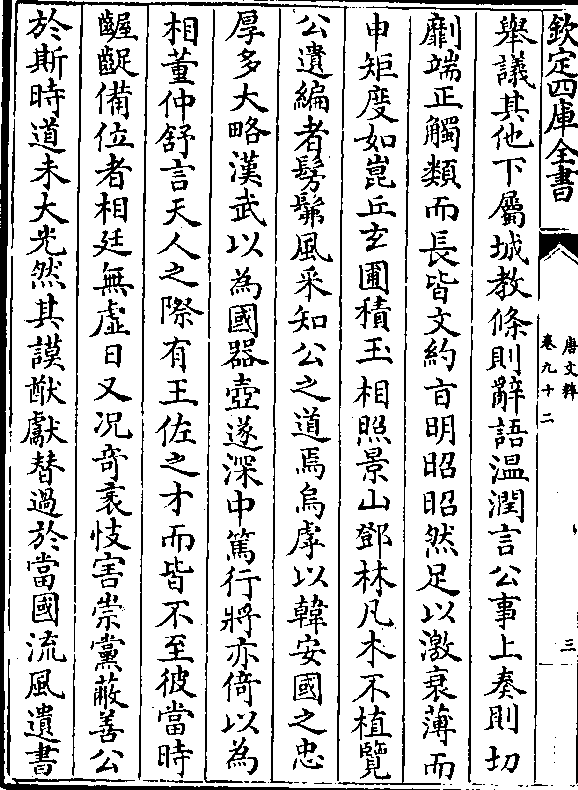 欽定四庫全書
唐文粹
卷九十二
三
舉議其他下屬城教條則辭語溫潤言公事上奏則切
劘端正觸類而長皆文約㫖明昭昭然足以激衰薄而
申矩度如崑丘玄圃積玉相照景山鄧林凡木不植覽
公遺編者髣髴風采知公之道焉烏虖以韓安國之忠
厚多大略漢武以為國器壺遂深中篤行將亦倚以為
相董仲舒言天人之際有王佐之才而皆不至彼當時
齷齪備位者相廷無虛日又况竒衺忮害崇黨蔽善公
於斯時道未大光然其謨猷獻替過於當國流風遺書